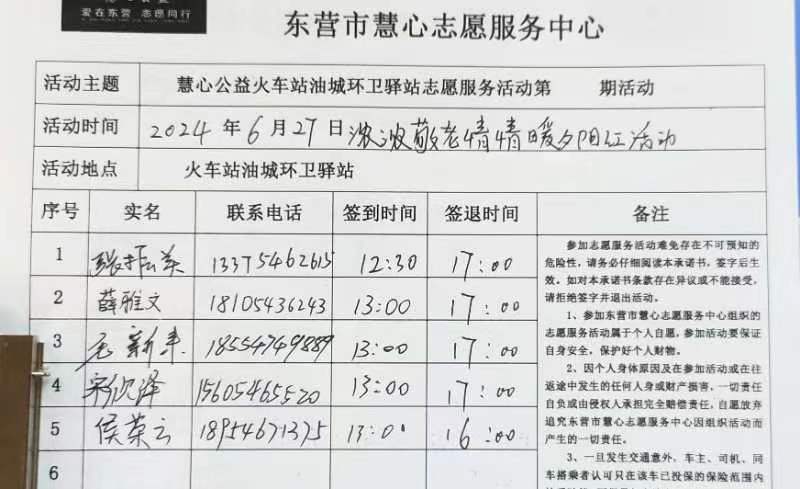 爱在东营 志愿同行
东营市慧心志愿服务中心
活动主题 慧心公益火车站油城环卫驿站志愿服务活动第 期活动
活动时间 2024年6月27日浓浓敬老情情暖夕阳红活动
活动地点 火车站油城环卫驿站
序号 实名 联系电话 签到时间 签退时间 备注
1 张振英 13375462615 12:30 17:00
2 薛雅文 18105436243 13:00 17:00
3 新 18554749889 13:00 17:00
4 欣泽 15605465520 13:00 17:00
5 侯荣云 18954671375 13:0 16:00
6
参加志愿服务活动难免存在不可预知的
危险性，请务必仔细阅读本承诺书，签字后生
效。如对本承诺书条款存在异议或不能接受，
请拒绝签字并退出活动。
1、参加东营市慧心志愿服务中心组织的
志愿服务活动属于个人自愿，参加活动要保证
自身安全，保护好个人财物。
2、因个人身体原因及在参加活动或在往
返途中发生的任何人身或财产损害，一切责任
自负或由侵权人承担完全赔偿责任，自愿放弃
追究东营市慧心志愿服务中心因组织活动而
产生的一切责任。
3、一旦发生交通意外，车主、司机、同
车搭乘者认可只在该车已投保的保险范围内